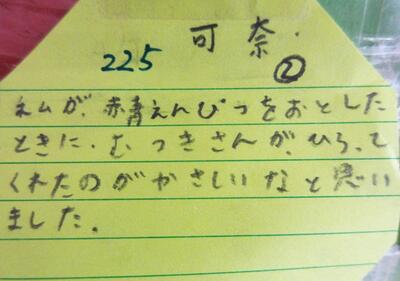 可奈
225
②
ネムが、赤青えんぴつをおとした
ときに、むつきさんが、ひろって
くれたのがやさしいなと思い
ました。